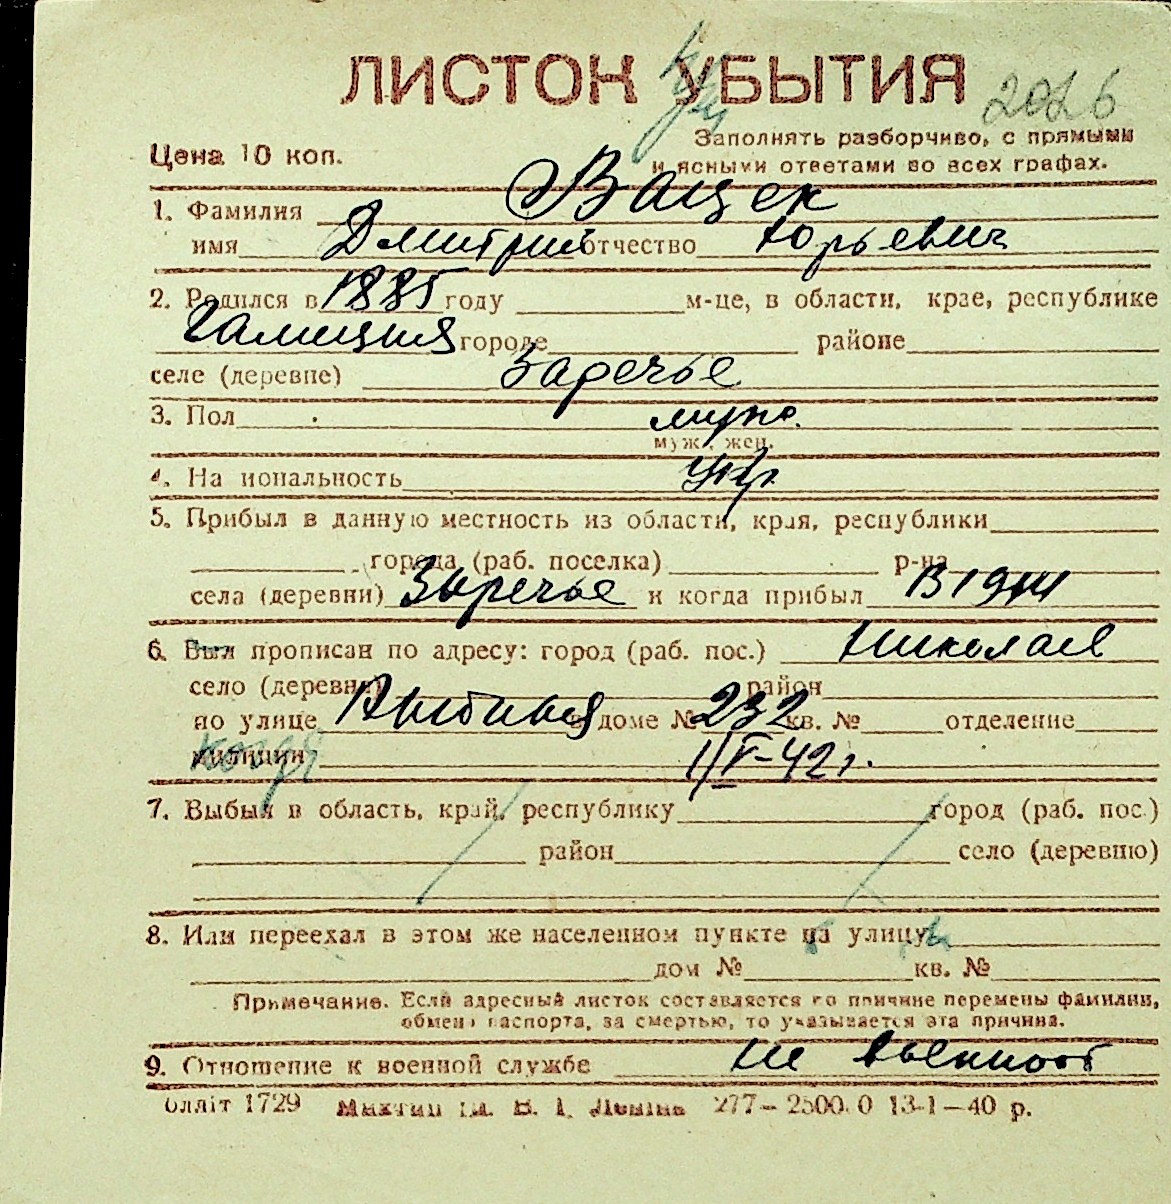 ЛИСТОК УБЫТИЯ
2026
Цена 10 коп.
Заполнять разборчиво, с прямыми
и ясными ответами во всех графах.
1. Фамилия Ващек
имя Дмитрий отчество Юрьевич
2. Родился в 1885 году м-це, в области, крае, республике
Галиция городе районе
селе (деревне) Заречье
3. Пол муж.
муж., жен.
4. Национальность укр.
5. Прибыл в данную местность из области, края, республики
города (раб. поселка) р-на
села (деревни) Заречье и когда прибыл В 1914
6. Был прописан по адресу: город (раб. пос.) Николаев
село (деревня) район
по улице в доме № 232 кв. № отделение
милиции 1/V-42 г.
7. Выбыл в область, край, республику город (раб. пос.)
район село (деревню)
8. Или переехал в этом же населенном пункте на улицу
дом № кв. №
Примечание. Если адресный листок составляется по причине перемены фамилии,
обмена паспорта, за смертью, то указывается эта причина.
9. Отношение к военной службе не военнооб
Олліт 1729 277—2500.0 13-1—40 р.